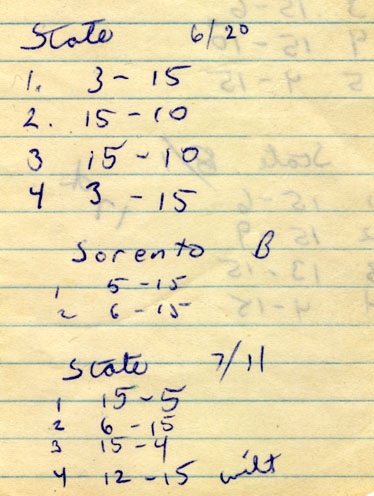 State 6/20
1. 3-15
2. 15-10
3 15-10
4 3-15
Sorento B
1 5-15
2 6-15
State 7/11
1 15-5
2 6-15
3 15-4
4 12-15 wilt